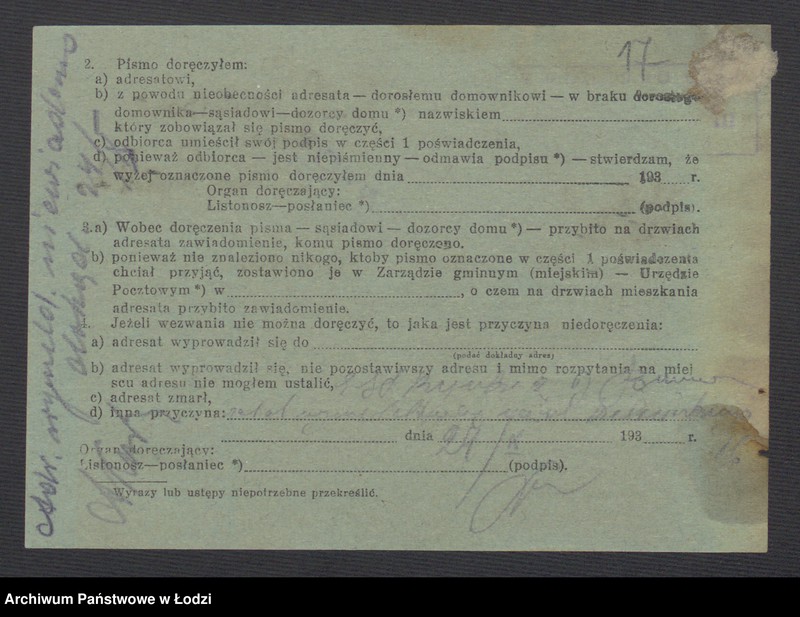 17
2. Pismo doręczyłem:
a) adresatowi,
b) z powodu nieobecności adresata — dorosłemu domownikowi — w braku dorosłego
domownika—sąsiadowi—dozorcy domu *) nazwiskiem
który zobowiązał się pismo doręczyć,
c) odbiorca umieścił swój podpis w części 1 poświadczenia,
d) ponieważ odbiorca — jest niepiśmienny — odmawia podpisu *) — stwierdzam, że
wyżej oznaczone pismo doręczyłem dnia 193 r.
Organ doręczający:
Listonosz—posłaniec *) (podpis).
3.a) Wobec doręczenia pisma — sąsiadowi — dozorcy domu *) — przybito na drzwiach
adresata zawiadomienie, komu pismo doręczono.
b) ponieważ nie znaleziono nikogo, ktoby pismo oznaczone w części 1 poświadczenia
chciał przyjąć, zostawiono je w Zarządzie gminnym (miejskim) — Urzędzie
Pocztowym *) w , o czem na drzwiach mieszkania
adresata przybito zawiadomienie.
Jeżeli wezwania nie można doręczyć, to jaka jest przyczyna niedoręczenia:
a) adresat wyprowadził się do
(podać dokładny adres)
b) adresat wyprowadził się, nie pozostawiwszy adresu i mimo rozpytania na miej
scu adresu nie mogłem ustalić,
c) adresat zmarł,
d) inna przyczyna:
dnia 193 r.
Organ doręczający:
Listonosz—posłaniec *) (podpis).
Wyrazy lub ustępy niepotrzebne przekreślić.
Archiwum Państwowe w Łodzi